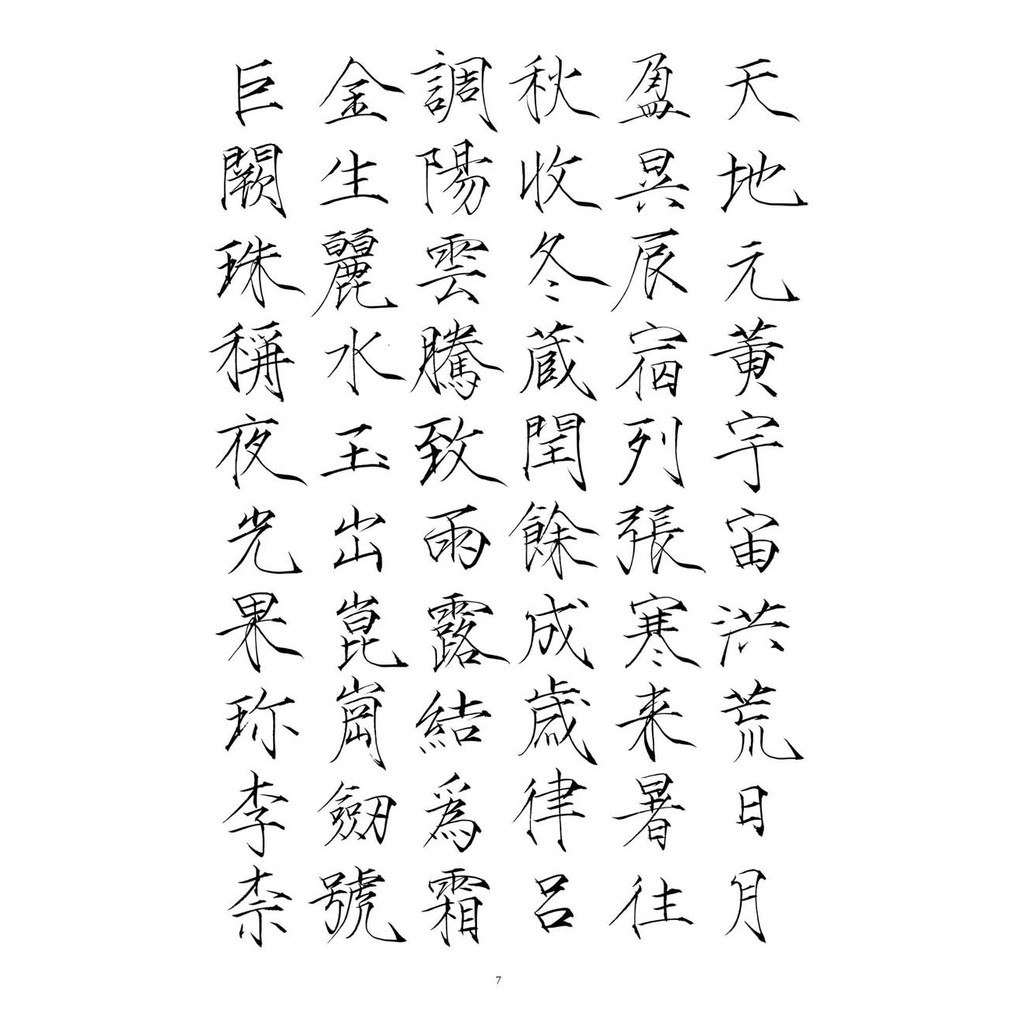 天地元黄宇宙洪荒日月
盈昃辰宿列張寒来暑往
秋收冬蔵閏餘成歳律呂
調陽雲騰致雨露結爲霜
金生麗水玉出崑崗劔號
巨闕珠稱夜光果珎李柰
7